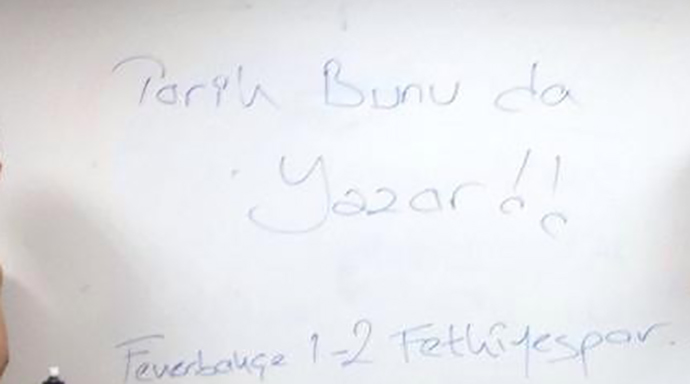 Tarih Bunu da
Yazar!!
Fenerbahçe 1-2 Fethiyespor.